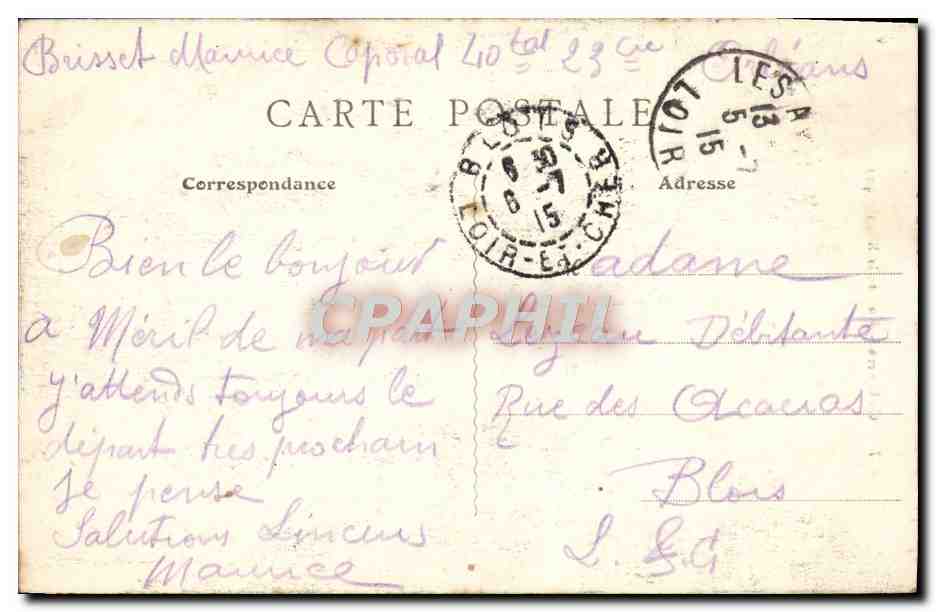 Brisset Maurice Caporal 40 tal 23 cie Orléans
CARTE POSTALE
Correspondance
Adresse
BLOIS
6 30
6 -7
15
LOIR-ET-CHER
LES A
13
5 -7
15
LOIR
Bien le bonjour
a Méril de ma part
J'attends toujours le
départ tres prochain
Je pense
Salutions Sincères
Maurice
CPAPHIL
Madame
Débitante
Rue des Acacias
Blois
L. & C